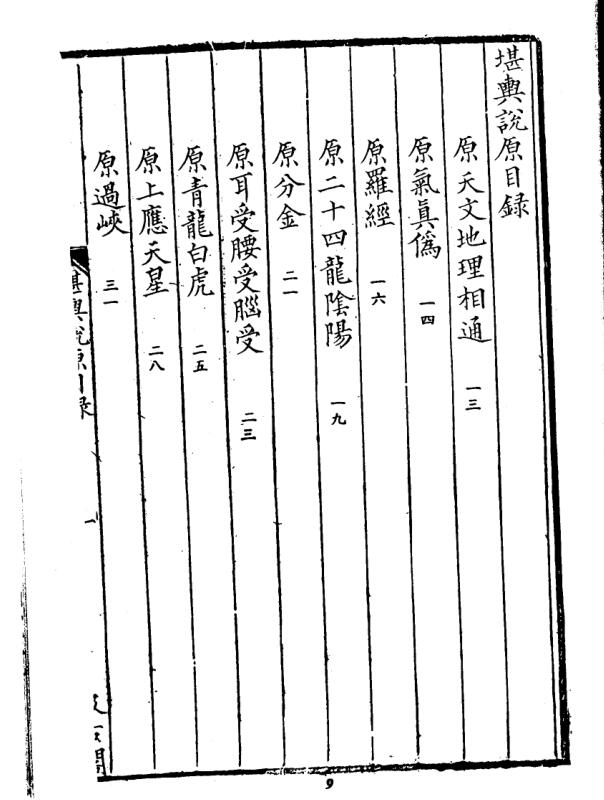 堪輿說原目録
原天文地理相通 一三
原氣眞僞 一四
原羅經 一六
原二十四龍陰陽 一九
原分金 二一
原耳受腰受腦受 二三
原青龍白虎 二五
原上應天星 二八
原過峽 三一
堪輿說原目録
一
9